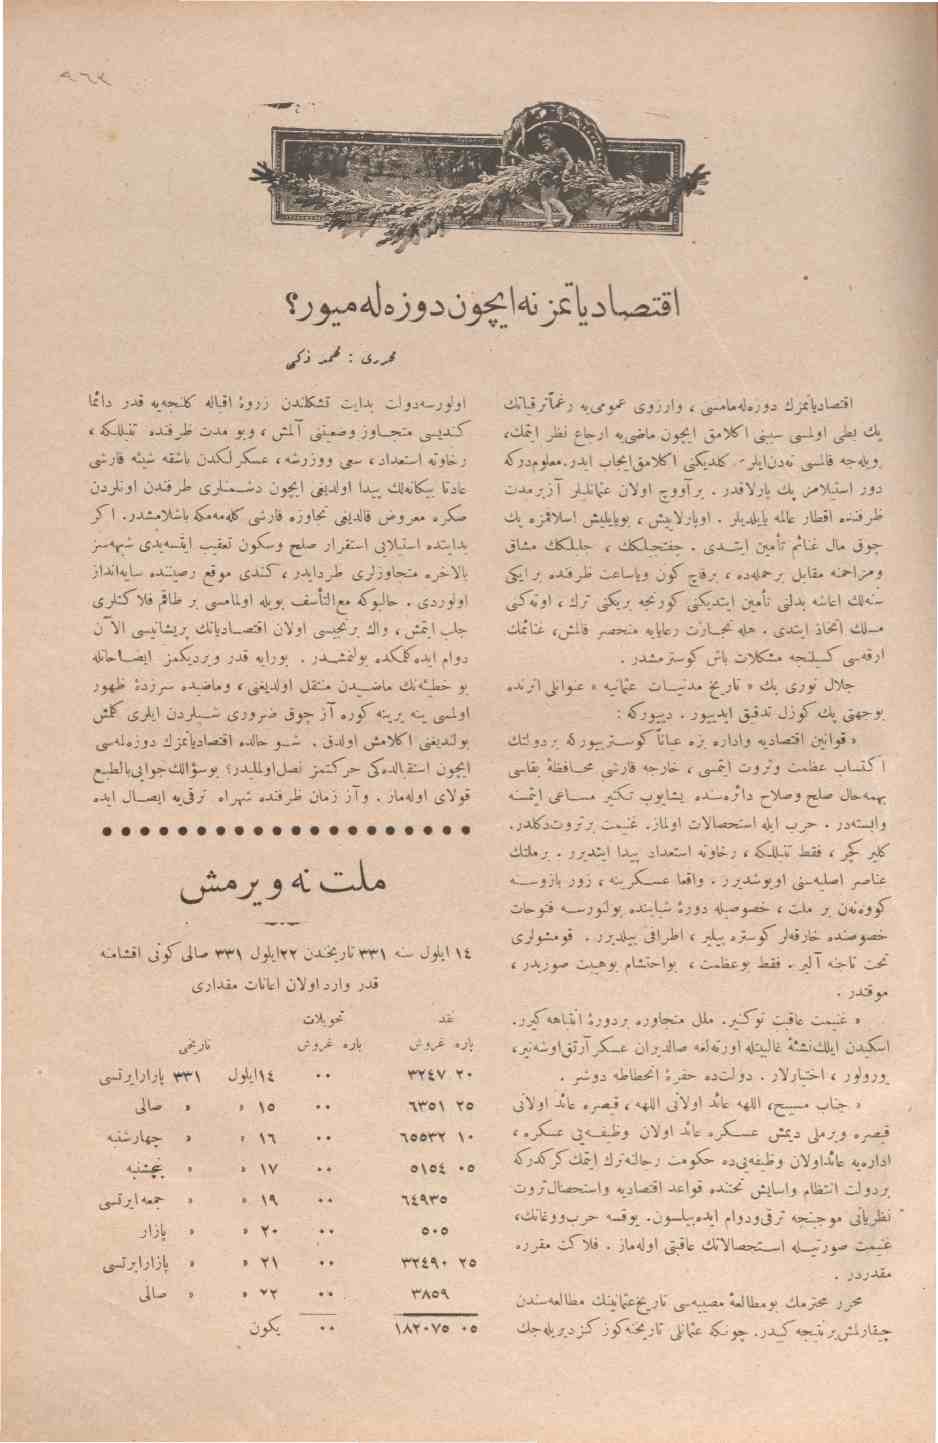 ٩٦٣
اقتصادیاتمز نه ایچون دوزه‌له‌میور؟
محرری : محمد ذکی
اقتصادیاتمزك دوزه‌له‌مامسی ، وارزوی عمومی‌یه رغماً ترقیاتك
پك بطی اولمسی سببنی اکلامق ایچون ماضی‌یه ارجاع نظر ایتمك،
وبله‌جه قالمسی نه‌دن‌ایلر کلدیکنی اکلامق ایجاب ایدر. معلوم‌درکه
دور استیلامز پك پارلاقدر . برآووچ اولان عثمانلیلر آزبرمدت
ظرفنده اقطار عالمه یایلدیلر . اوپارلاییش ، بویاییلیش اسلافمزه پك
چوق مال غنائم تأمین ایتدی . چفتجیلکك ، جلبلکك مشاق
ومزاحمنه مقابل برحمله‌ده ، برقاچ کون ویاساعت ظرفنده برایکی
سنه‌لك اعاشه بدلنی تأمین ایتدیکنی کورنجه بریکنی ترك ، اوته‌کنی
مسلك اتخاذ ایتدی . هله تجارت رعایایه منحصر قالمش، غنائمك
ارقه‌سی کسیلنجه مشکلات باش کوسترمشدر .
جلال نوری بك « تاریخ مدنیات عثمانیه » عنوانلی اثرنده
بوجهتی پك کوزل تدقیق ایدییور . دییورکه :
« قوانین اقتصادیه واداره بزه عیاناً کوسترییورکه بردولتك
اکتساب عظمت وثروت ایتمسی ، خارجه قارشی محافظهٔ بقاسی
بهمه‌حال صلح وصلاح دائره‌سنده یشایوب تکثیر مساعی ایتمسنه
وابسته‌در . حرب ایله استحصالات اولماز. غنیمت برثروت‌دکلدر.
کلیر کچر ، فقط تنبللکه ، رخاوته استعداد پیدا ایتدیرر . برملتك
عناصر اصلیه‌سنی اویوشدیرر . واقعا عسکرینه ، زور بازوسنه
کووه‌نه‌ن بر ملت ، خصوصیله دورهٔ شبابنده بولنورسه فتوحات
خصوصنده خارقه‌لر کوستره بیلیر ، اطرافی ییلدیرر . قومشولری
تحت تاجنه آلیر. فقط بوعظمت ، بواحتشام بوهیبت صوریدر ،
موقتدر .
« غنیمت عاقبت توکنیر. ملل متجاوره بردورهٔ انتباهه کیرر.
اسکیدن ایلك‌نشئهٔ غالبیتله اورته‌لغه صالدیران عسکر آرتق اوشه‌نیر،
یورولور ، اختیارلار . دولت‌ده حفرهٔ انحطاطه دوشر .
« جناب مسیح، اللهه عائد اولانی اللهه ، قیصره عائد اولانی
قیصره ویرملی دیمش عسکره عائد اولان وظیفه‌یی عسکره ،
اداره‌یه عائداولان وظیفه‌یی‌ده حکومت رجالنه‌ترك ایتمك کرکدرکه
بردولت انتظام واسایش تحتنده قواعد اقتصادیه واستحصال‌ثروت
نظریاتی موجبنجه ترقی‌ودوام ایده‌بیلسون. یوقسه حرب‌ووغانك،
غنیمت صورتیله استحصالاتك عاقبتی اوله‌ماز . فلاکت مقرره
مقدردر .
محرر محترمك بومطالعهٔ مصیبه‌سی تاریخ‌عثمانینك مطالعه‌سندن
چیقارلمش‌برنتیجه کیدر. چونکه عثمانلی تاریخنه‌کوز کزدیریله‌جك
اولورسه‌دولت بدایت تشکلندن زروهٔ اقباله کلنجه‌یه قدر دائما
کندیسی متجاوز وضعیتنی آلمش ، وبو مدت ظرفنده تنبللکه ،
رخاوته استعداد ، سعی وورزشه ، عسکرلکدن باشقه شیئه قارشی
عادتا بیکانه‌لك پیدا اولدیغی ایچون دشمنلری طرفندن اونلردن
صکره معروض قالدیغی تجاوزه قارشی کله‌مه‌مکه باشلامشدر. اکر
بدایتده استیلایی استقرار صلح وسکون تعقیب ایتسه‌یدی شبهه‌سز
بالاخره متجاوزلری طردایدر ، کندی موقع رصیننده سایه‌انداز
اولوردی . حالبوکه مع‌التأسف بویله اولمامسی بر طاقم فلاکتلری
جلب ایتمش ، واك برنجیسی اولان اقتصادیاتك پریشانیسی الآن
دوام ایده‌کلمکده بولنمشدر . بورایه قدر ویردیکمز ایضاحاتله
بو خطیئه‌نك ماضیدن منتقل اولدیغنی ، وماضیده سرزدهٔ ظهور
اولمسی ینه یرینه کوره آز چوق ضروری شیلردن ایلری کلمش
بولندیغنی اکلامش اولدق . شو حالده اقتصادیاتمزك دوزه‌له‌سی
ایچون استقبالده‌کی حرکتمز نصل‌اولملیدر؟ بوسؤالك‌جوابی‌بالطبع
قولای اوله‌ماز . وآز زمان ظرفنده شهراه ترقی‌یه ایصال ایده
ملت نه ویرمش
١٤ ایلول سنه ٣٣١ تاریخندن ٢٢ایلول ٣٣١ صالی کونی اقشامنه
قدر وارد اولان اعانات مقداری
نقد تحویلات
پاره غروش پاره غروش تاریخی
٢٠ ٣٢٤٧ ٠٠ ١٤ایلول ٣٣١ پازارایرتسی
٢٥ ٦٣٥١ ٠٠ ١٥ » » صالی
١٠ ٦٥٥٣٢ ٠٠ ١٦ » » چهارشنبه
٠٥ ٥١٥٤ ٠٠ ١٧ » » پنچشنبه
٦٤٩٣٥ ٠٠ ١٩ » » جمعه ایرتسی
٥٠٥ ٠٠ ٢٠ » » پازار
٢٥ ٣٢٤٩٠ ٠٠ ٢١ » » پازارایرتسی
٣٨٥٩ ٠٠ ٢٢ » » صالی
٠٥ ١٨٢٠٧٥ ٠٠ یکون